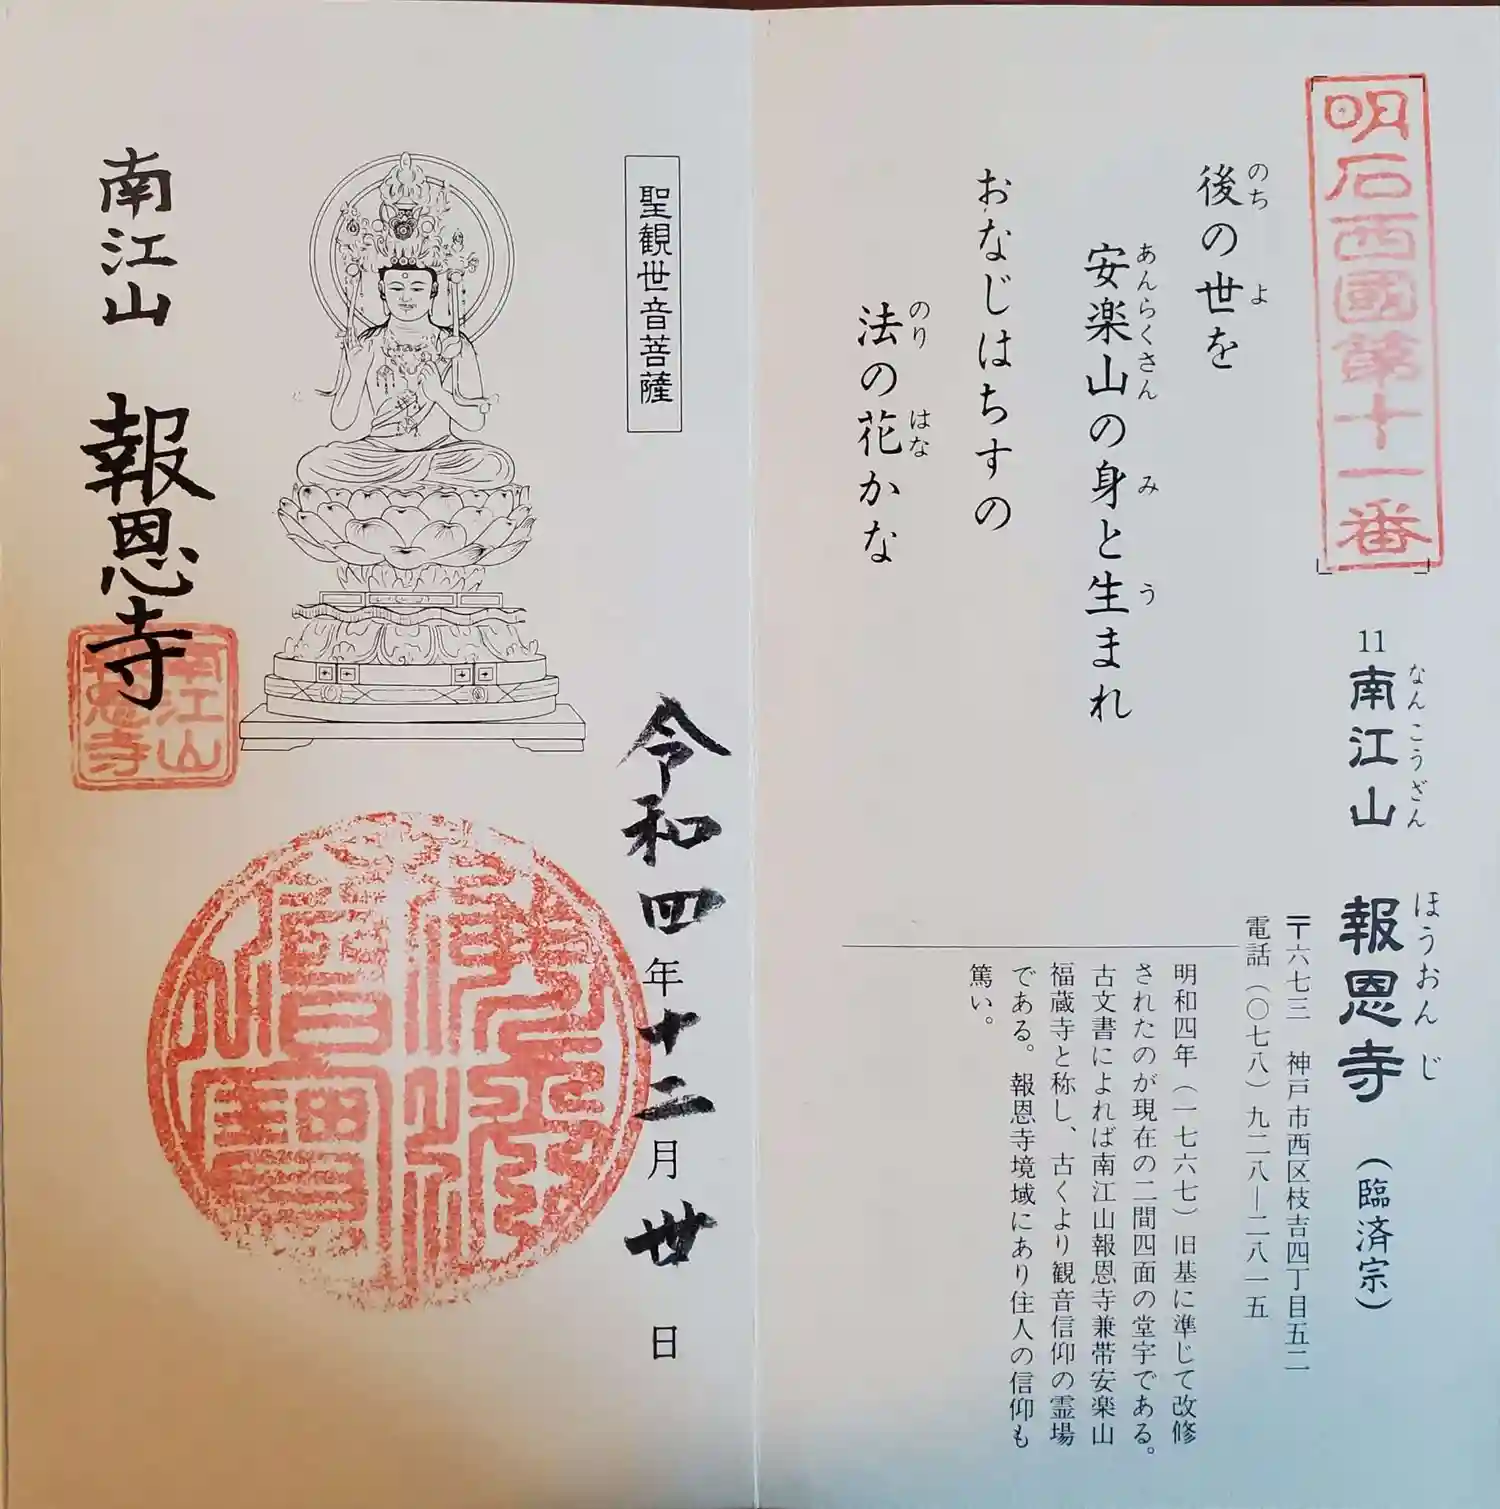 明石西國第十一番
11 南江山 報恩寺（臨済宗）
なんこうざん ほうおんじ
〒六七三 神戸市西区枝吉四丁目五二
電話（〇七八）九二八―二八一五
後の世を
のち よ
安楽山の身と生まれ
あんらくさん み う
おなじはちすの
法の花かな
のり はな
明和四年（一七六七）旧基に準じて改修
されたのが現在の二間四面の堂宇である。
古文書によれば南江山報恩寺兼帯安楽山
福蔵寺と称し、古くより観音信仰の霊場
である。報恩寺境域にあり住人の信仰も
篤い。
聖観世音菩薩
令和四年十二月卅日
南江山 報恩寺
南江山
報恩寺